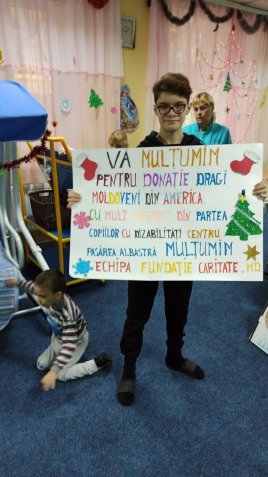 VA MULȚUMIM
PENTRU DONAȚIE DRAGI
MOLDOVENI DIN AMERICA.
CU MULT RESPECT DIN PARTEA
COPIILOR CU DIZABILITĂȚI CENTRU
PASĂREA ALBASTRĂ MULȚUMIM
ECHIPA FUNDAȚIE CARITATE.MD